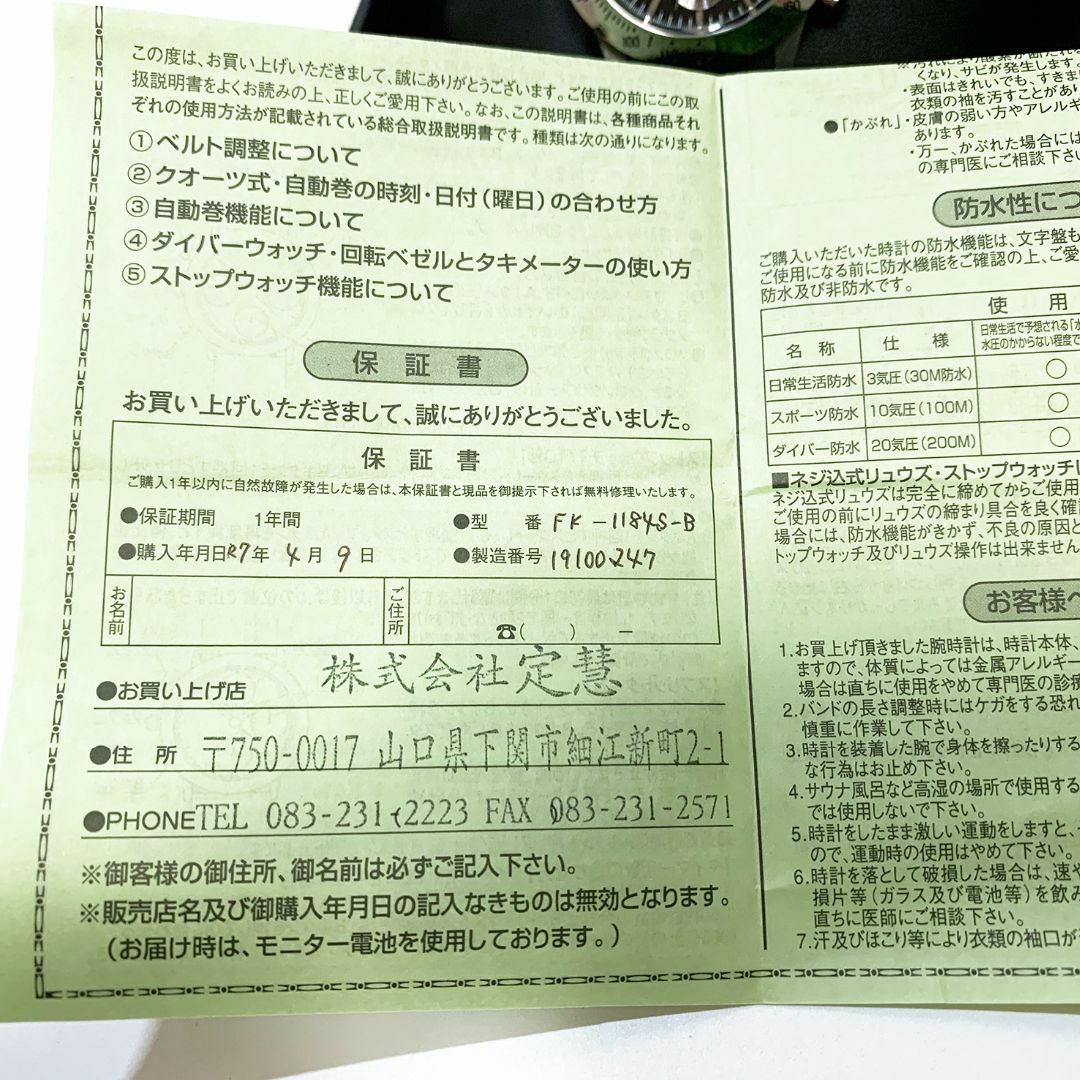 この度は、お買い上げいただきまして、誠にありがとうございます。ご使用の前にこの取
扱説明書をよくお読みの上、正しくご愛用下さい。なお、この説明書は、各種商品それ
ぞれの使用方法が記載されている総合取扱説明書です。種類は次の通りになります。
①ベルト調整について
②クオーツ式・自動巻の時刻・日付(曜日)の合わせ方
③自動巻機能について
④ダイバーウォッチ・回転ベゼルとタキメーターの使い方
⑤ストップウォッチ機能について
保証書
お買い上げいただきまして、誠にありがとうございました。
保証書
ご購入1年以内に自然故障が発生した場合は、本保証書と現品を御提示下されば無料修理いたします。
●保証期間 1年間 ●型 番 FK-1184S-B
●購入年月日 R7年 4月 9日 ●製造番号 19100247
お名前 ご住所 ☎( ) －
●お買い上げ店 株式会社定慧
●住 所 〒750-0017 山口県下関市細江新町2-1
●PHONE TEL 083-231-2223 FAX 083-231-2571
※御客様の御住所、御名前は必ずご記入下さい。
※販売店名及び御購入年月日の記入なきものは無効となります。
(お届け時は、モニター電池を使用しております。)
くなり、サビが発生します。
・表面はきれいでも、すきま
衣類の袖を汚すことがあり
●「かぶれ」・皮膚の弱い方やアレルギ
あります。
・万一、かぶれた場合には
の専門医にご相談下さい
防水性につ
ご購入いただいた時計の防水機能は、文字盤も
ご使用になる前に防水機能をご確認の上、ご愛
防水及び非防水です。
使 用
名 称 仕 様 日常生活で予想される「水
水圧のかからない程度で
日常生活防水 3気圧(30M防水) ○
スポーツ防水 10気圧(100M) ○
ダイバー防水 20気圧(200M) ○
■ネジ込式リュウズ・ストップウォッチ
ネジ込式リュウズは完全に締めてからご使用
ご使用の前にリュウズの締まり具合を良く確認
場合には、防水機能がきかず、不良の原因と
トップウォッチ及びリュウズ操作は出来ません
お客様へ
1.お買上げ頂きました腕時計は、時計本体、
ますので、体質によっては金属アレルギー
場合は直ちに使用をやめて専門医の診療
2.バンドの長さ調整時にはケガをする恐れ
慎重に作業して下さい。
3.時計を装着した腕で身体を擦ったりする
な行為はお止め下さい。
4.サウナ風呂など高湿の場所で使用する
では使用しないで下さい。
5.時計をしたまま激しい運動をしますと、
ので、運動時の使用はやめて下さい。
6.時計を落として破損した場合は、速や
損片等(ガラス及び電池等)を飲み
直ちに医師にご相談下さい。
7.汗及びほこり等により衣類の袖口が